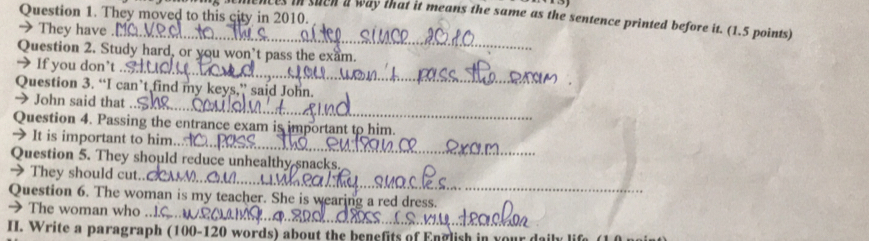 sentences in such a way that it means the same as the sentence printed before it. (1.5 points)
Question 1. They moved to this city in 2010.
→ They have moved to this citey since 2010
Question 2. Study hard, or you won't pass the exam.
→ If you don't study hard, you won't pass the exam.
Question 3. "I can't find my keys," said John.
→ John said that she couldn't find
Question 4. Passing the entrance exam is important to him.
→ It is important to him to pass the entrance exam
Question 5. They should reduce unhealthy snacks.
→ They should cut down on unhealthy snacks
Question 6. The woman is my teacher. She is wearing a red dress.
→ The woman who is wearing a red dress is my teacher
II. Write a paragraph (100-120 words) about the benefits of English in your daily life. (1.0 point)